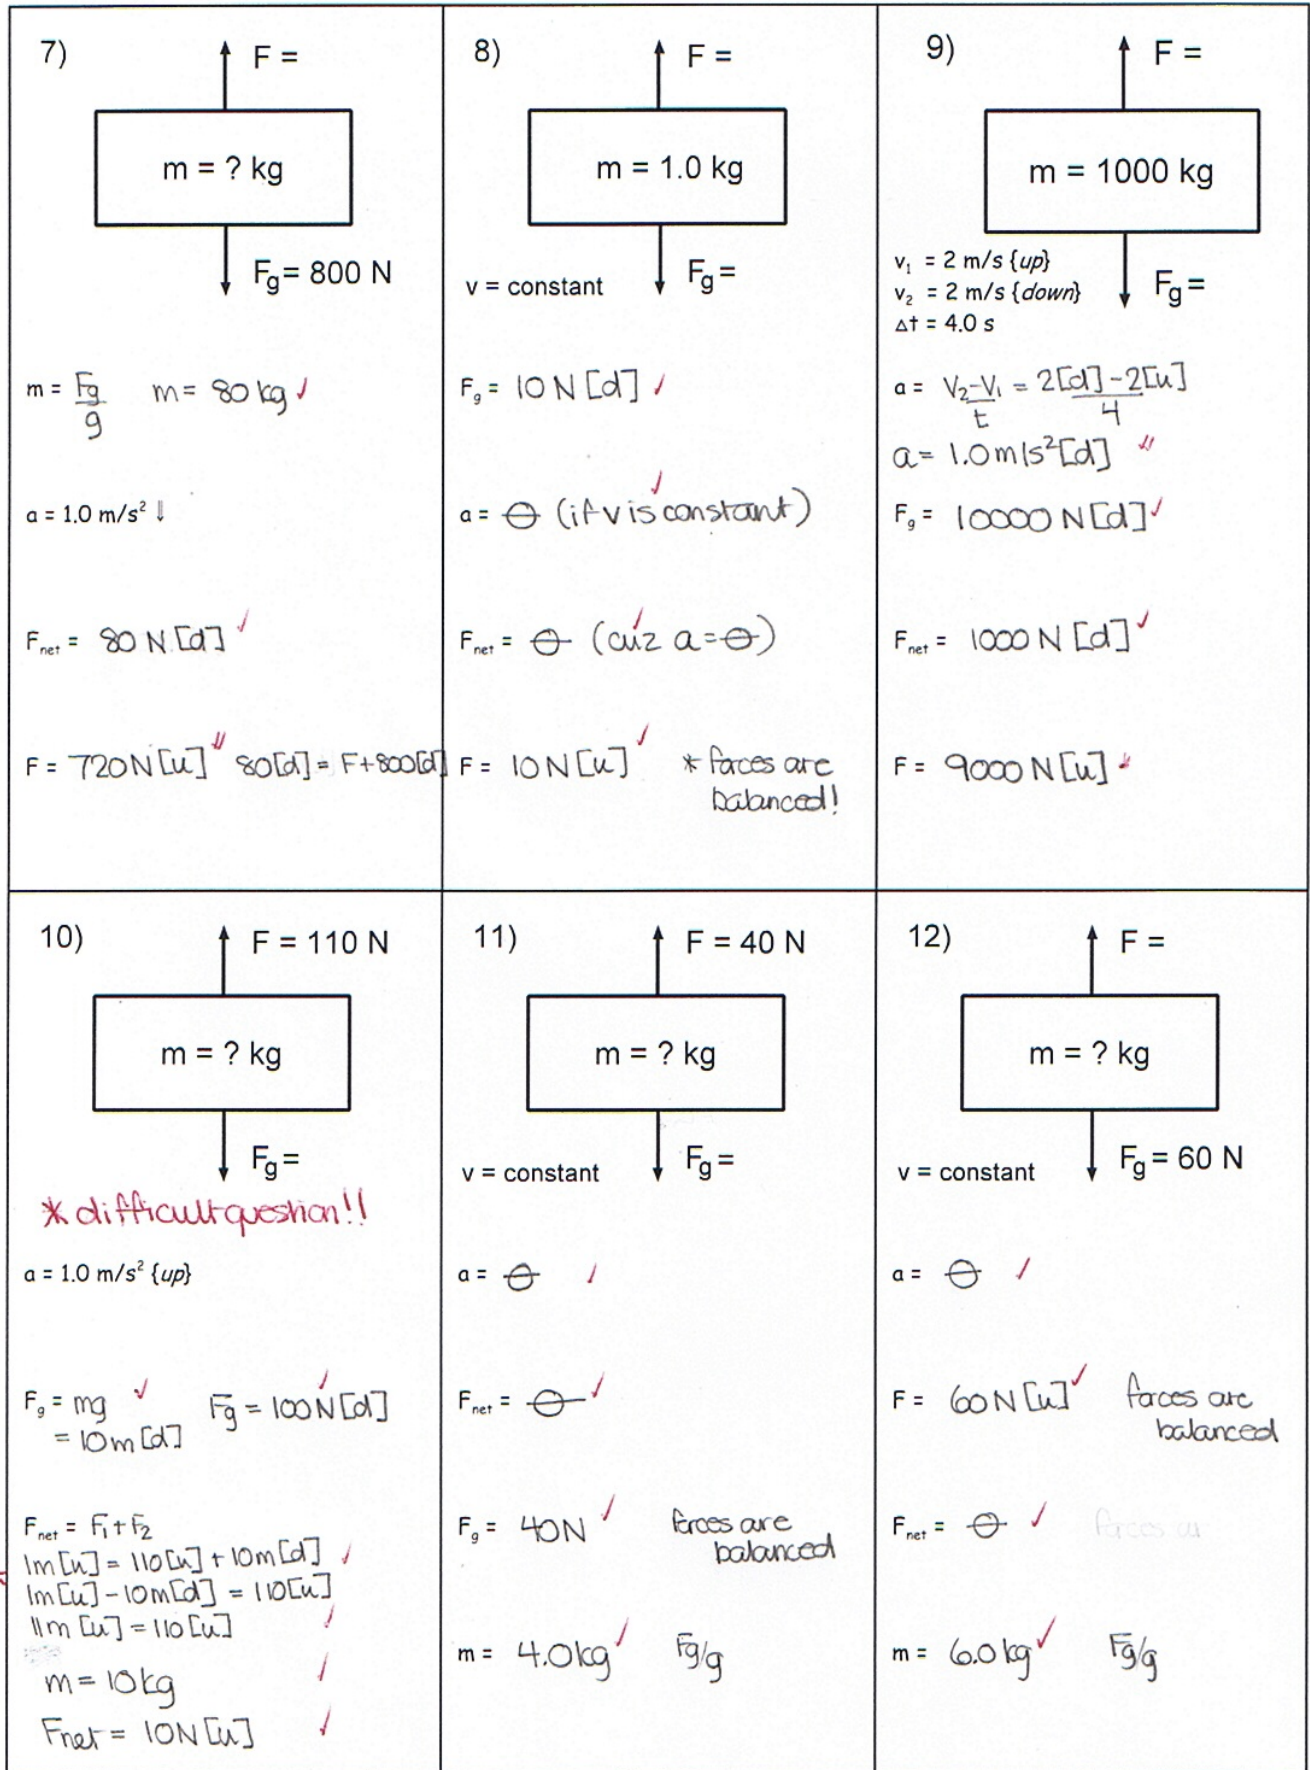 7)
F =
m = ? kg
Fg = 800 N
m = Fg/g m = 80 kg ✓
a = 1.0 m/s² ⇓
Fnet = 80 N [d] ✓
F = 720 N [u] ✓✓ 80[d] = F + 800[d]
8)
F =
m = 1.0 kg
v = constant
Fg =
Fg = 10 N [d] ✓
a = ⊖ (if v is constant) ✓
Fnet = ⊖ (cuz a = ⊖) ✓
F = 10 N [u] ✓ * forces are
balanced!
9)
F =
m = 1000 kg
v₁ = 2 m/s {up}
v₂ = 2 m/s {down}
Δt = 4.0 s
Fg =
a = V₂-V₁/t = 2[d] - 2[u]/4
a = 1.0 m/s² [d] ✓✓
Fg = 10000 N [d] ✓
Fnet = 1000 N [d] ✓
F = 9000 N [u] ✓
10)
F = 110 N
m = ? kg
Fg =
* difficult question!!
a = 1.0 m/s² {up}
Fg = mg ✓ Fg = 100 N [d] ✓
= 10m [d]
Fnet = F₁ + F₂
1m [u] = 110 [u] + 10m [d] ✓
1m [u] - 10m [d] = 110 [u]
11m [u] = 110 [u] ✓
m = 10 kg ✓
Fnet = 10 N [u] ✓
11)
F = 40 N
m = ? kg
v = constant
Fg =
a = ⊖ ✓
Fnet = ⊖ ✓
Fg = 40 N ✓ forces are
balanced
m = 4.0 kg ✓ Fg/g
12)
F =
m = ? kg
v = constant
Fg = 60 N
a = ⊖ ✓
F = 60 N [u] ✓ forces are
balanced
Fnet = ⊖ ✓
m = 6.0 kg ✓ Fg/g